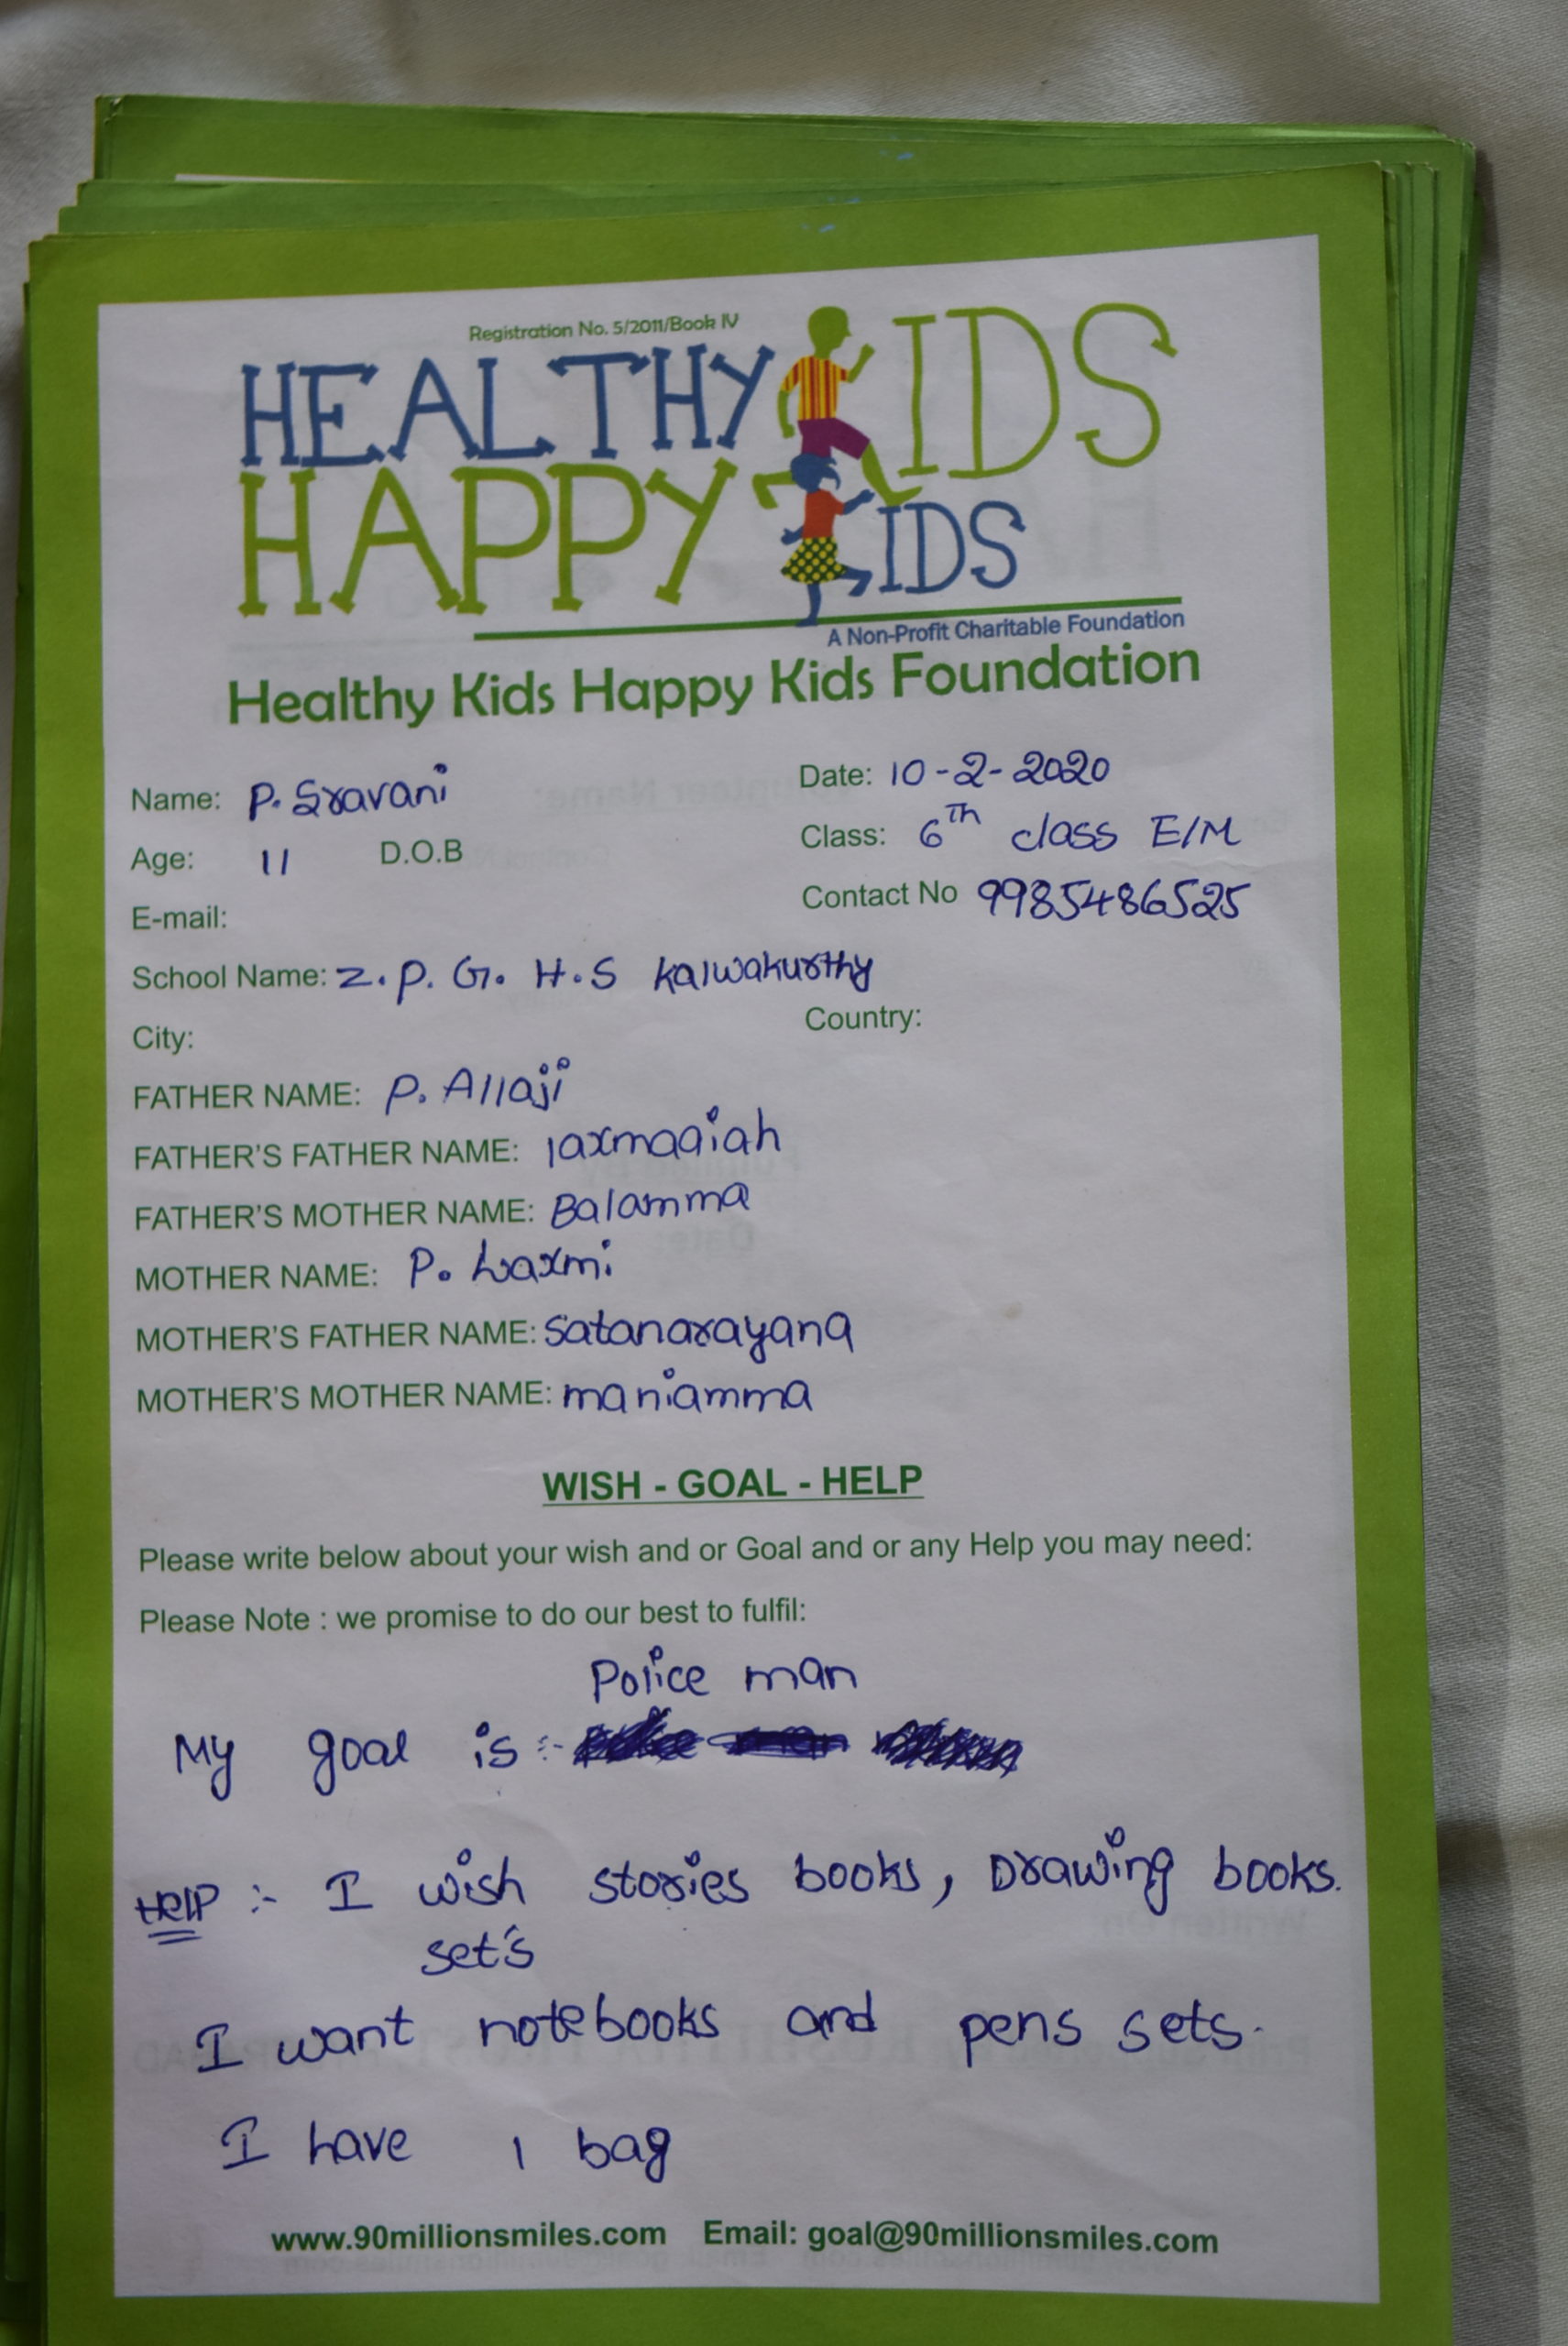 Registration No. 5/2011/Book IV
HEALTHY KIDS
HAPPY KIDS
A Non-Profit Charitable Foundation
Healthy Kids Happy Kids Foundation
Name: P. Sravani Date: 10-2-2020
Age: 11 D.O.B Class: 6Th class E/M
E-mail: Contact No 9985486525
School Name: Z.P.G.H.S Kalwakurthy
City: Country:
FATHER NAME: P. Allaji
FATHER'S FATHER NAME: laxmaaiah
FATHER'S MOTHER NAME: Balamma
MOTHER NAME: P. Laxmi
MOTHER'S FATHER NAME: Satanarayana
MOTHER'S MOTHER NAME: maniamma
WISH - GOAL - HELP
Please write below about your wish and or Goal and or any Help you may need:
Please Note : we promise to do our best to fulfil:
Police man
My goal is :-
HelP :- I wish stories books, Drawing books.
set's
I want notebooks and pens sets.
I have 1 bag
www.90millionsmiles.com Email: goal@90millionsmiles.com